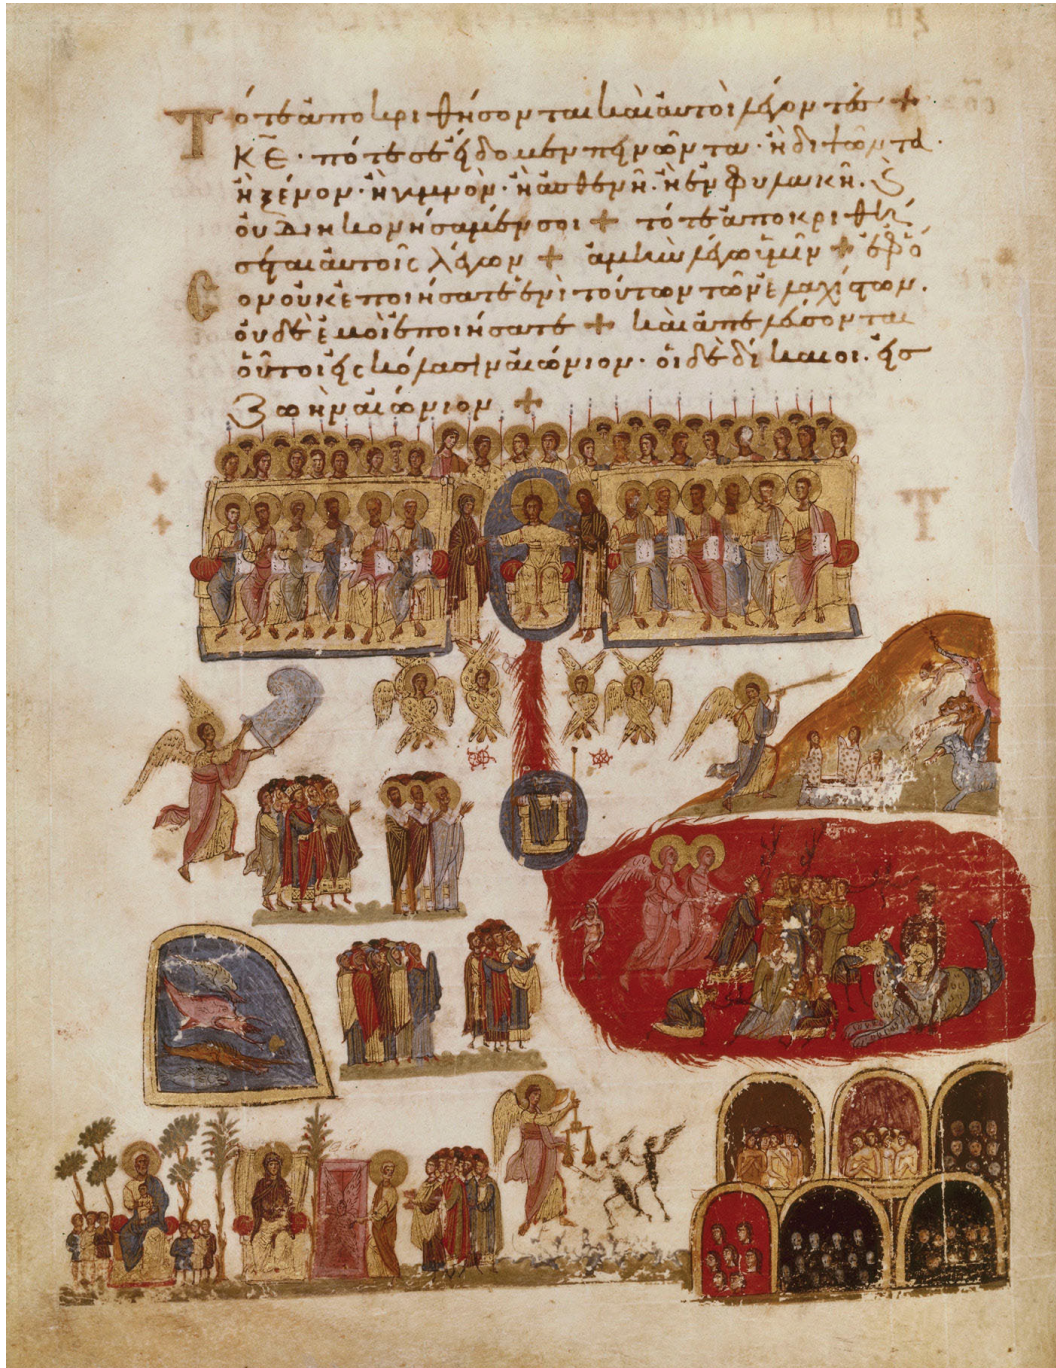 Τότε ἀποκριθήσονται καὶ αὐτοὶ λέγοντες +
Κ̅Ε̅· πότε σὲ εἴδομεν πεινῶντα· ἢ διψῶντα·
ἢ ξένον· ἢ γυμνὸν· ἢ ἀσθενῆ· ἢ ἐν φυλακῆ· ϗ
οὐ διηκονήσαμέν σοι + τότε ἀποκριθή
σεται αὐτοῖς λέγων + ἀμὴν λέγω ὑμῖν + ἐφ ὅ
σον οὐκ ἐποιήσατε ἑνὶ τούτων τῶν ἐλαχίστων·
οὐδὲ ἐμοὶ ἐποιήσατε + καὶ ἀπελέσονται
οὗτοι εἰς κόλασιν αἰώνιον· οἱ δὲ δίκαιοι· εἰσ
ζωὴν αἰώνιον +